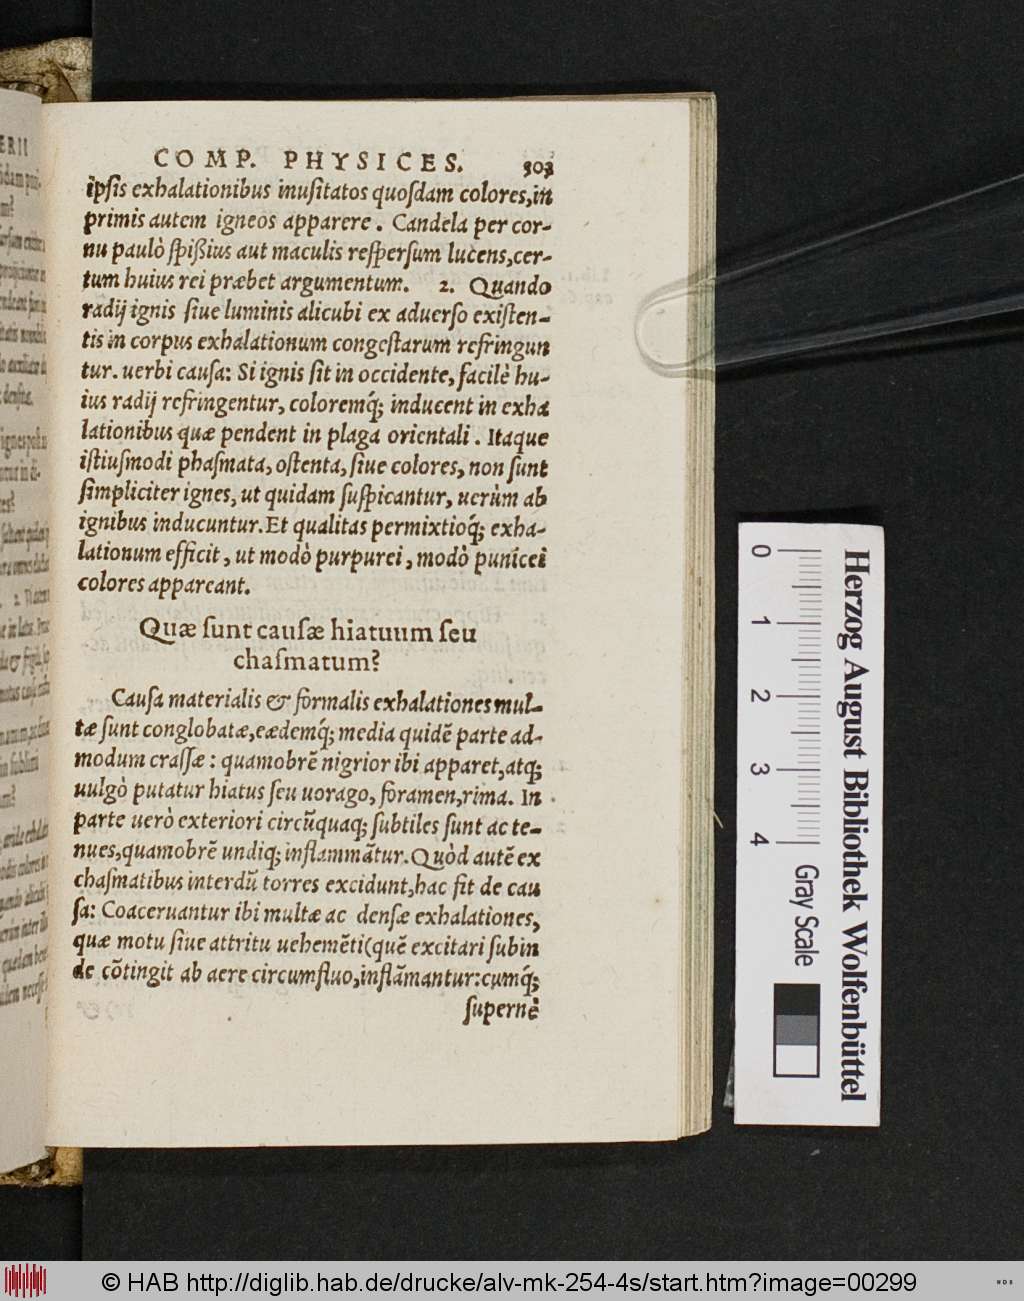 COMP. PHYSICES. 303
ipsis exhalationibus inuſitatos quoſdam colores,in
primis autem igneos apparere. Candela per cor-
nu paulò ſpißius aut maculis reſperſum lucens,cer-
tum huius rei præbet argumentum. 2. Quando
radij ignis ſiue luminis alicubi ex aduerſo exiſten-
tis in corpus exhalationum congeſtarum refringun
tur. uerbi cauſa: Si ignis ſit in occidente, facilè hu-
ius radij refringentur, coloremq́; inducent in exha
lationibus quæ pendent in plaga orientali. Itaque
iſtiuſmodi phaſmata, oſtenta, ſiue colores, non ſunt
ſimpliciter ignes, ut quidam ſuſpicantur, uerùm ab
ignibus inducuntur. Et qualitas permixtioq́; exha-
lationum efficit, ut modò purpurei, modò punicei
colores appareant.
Quæ ſunt cauſæ hiatuum ſeu
chaſmatum?
Cauſa materialis & formalis exhalationes mul-
tæ ſunt conglobatæ,eædemq́; media quidẽ parte ad-
modum craſſæ: quamobrẽ nigrior ibi apparet,atq;
uulgò putatur hiatus ſeu uorago, foramen,rima. In
parte uerò exteriori circũquaq; ſubtiles ſunt ac te-
nues,quamobrẽ undiq; inflammãtur. Quòd autẽ ex
chaſmatibus interdũ torres excidunt,hac fit de cau
ſa: Coaceruantur ibi multæ ac denſæ exhalationes,
quæ motu ſiue attritu uehemẽti(quẽ excitari ſubin
de cõtingit ab aere circumfluo,inflãmantur:cumq́;
ſupernè
0 1 2 3 4
Gray Scale
Herzog August Bibliothek Wolfenbüttel
© HAB http://diglib.hab.de/drucke/alv-mk-254-4s/start.htm?image=00299